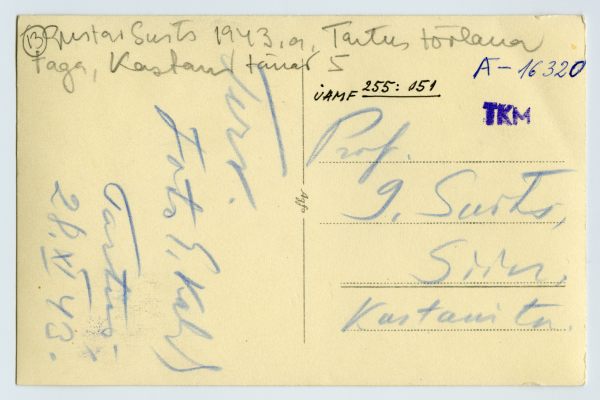 13 Gustav Suits 1943. a. Tartus töölaua
taga, Kastani tänav 5
A-16320
ÜAMF 255: 051
TKM
Prof.
G. Suits,
Siin,
Kastani tn.
Foto E. Kald
Tartus
28. XI 43.